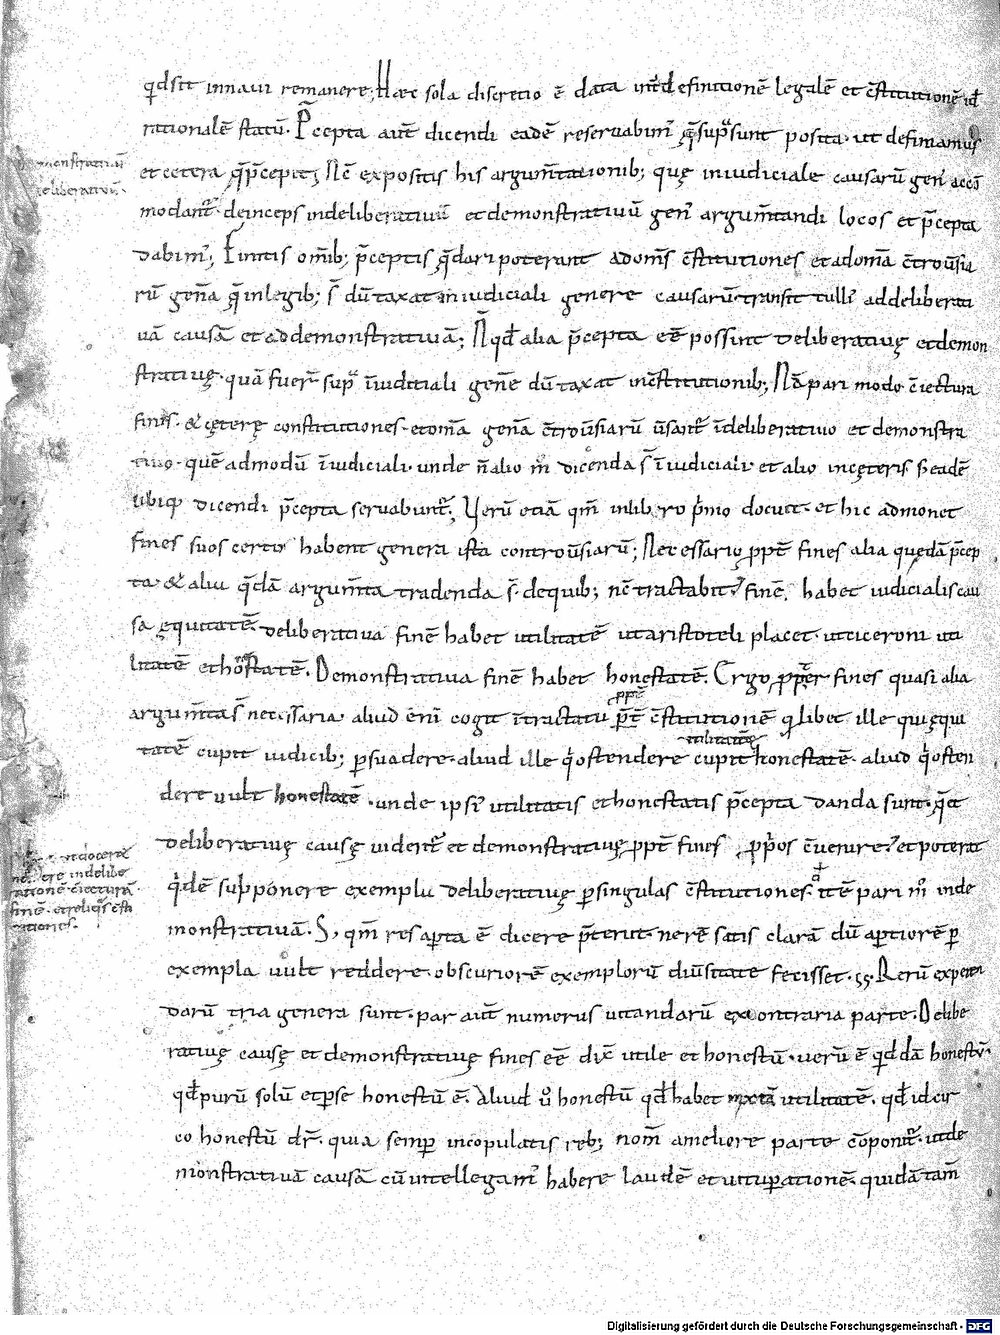 qd sit in naui remanere; Haec sola discretio ē data int̄ definitionē legalē et c̄stitutionē id
rationalē statū. P̄cepta aut̄ dicendi eadē reseruabim᾽ q̄ supͣ sunt posita. ut definiamus
et cetera q̄ p̄cepit; Nc̄ expositis his argum̄tationib; quę in iudiciale causarū gen᾽ acco
modant᾽. deinceps in deliberatiuū et demonstratiuū gen᾽ argum̄tandi locos et p̄cepta
dabim᾽; Finitis om̄ib; p̄ceptis q̄ dari poterant ad om̄s c̄stitutiones et ad om̄a c̄trou̅sia
rū gen̄a q̄ in legib; s̄ dū taxat in iudiciali genere causarū. transit tulli᾽ ad delibera
monstratiuū
deliberatiuū.
uā causā et ad demonstratiuā; N̄ qd̄ alia p̄cepta eē possint deliberatiuę et demon
stratiuę. quā fuer̄ supͣ ī iuditiali gen̄e dū taxat in c̄stitutionib; Nā pari modo c̄iectura
finis. & cęterę constitutiones. et om̄a gen̄a c̄trou̅siarū u̅sant᾽ ī deliberatiuo et demonstra
tiuo. quē admodū ī iudiciali. unde n̄ alio m̄ dicenda s̄ ī iudiciali. et alio in cęteris s̄ eadē
ubiq; dicendi p̄cepta seruabunt᾽; Uerū etiā qm̄ in lib ro p̄mo docuit. et hic admonet
fines suos certos habent genera ista controu̅siarū; Necessario ppt̄ fines alia quędā p̄cep
ta. & aliu q̄dā argum̄ta tradenda s̄. de quib; nc̄ tractabit᾽. finē habet iudicialis cau
sa ęquitatē. deliberatiua finē habet utilitatē ut aristoteli placet. ut ciceroni uti
litatē et honestatē. Demonstratiua finē habet honestatē. Ergo pp̄ter fines quasi alia
argum̄ta s̄ necissaria. aliud eni cogit ī tractatu p̄t c̄stitutionē qlibet ille qui ęqui
ppt̄
utilitatē
tatē cupit iudicib; psuadere. aliud ille q ostendere cupit honestatē. aliud q osten
dere uult honestatē. unde ipsi᾽ utilitatis et honestatis p̄cepta danda sunt. q̄ et
deliberatiuę causę uident᾽ et demonstratiuę ppt̄ fines pp̄os c̄uenire. et poterat
qdē supponere exemplu deliberatiuę p singulas c̄stitutiones. itē pari m̊ in de
monstratiuā. S, qm̄ res apta ē dicere p̄teriit. ne rē satis clarā dū aptiorē p
ut docere
in delibe
rationē c̄iecturā
finē. et reliqs c̄sti
tutiones.
exempla uult reddere. obscuriorē exemplorū diu̅sitate fecisset. Rerū expeten
darū tria genera sunt. par aut̄ numerus uitandarū ex contraria parte. Delibe
ratiuę causę et demonstratiuę fines eē dix̄ utile et honestū. uerū ē qddā honestū.
qd̄ purū solū et p se honestū ē. Aliud u̅ honestū qd̄ habet mixtā utilitatē. qd̄ idcir
co honestū dr̄. quia semp incopulatis reb; nom̄ a meliore parte c̄ponit᾽. ut de
monstratiuā causā cū intellegam᾽ habere laudē et uitupationē. quidā tam̄
Digitalisierung gefördert durch die Deutsche Forschungsgemeinschaft - DFG